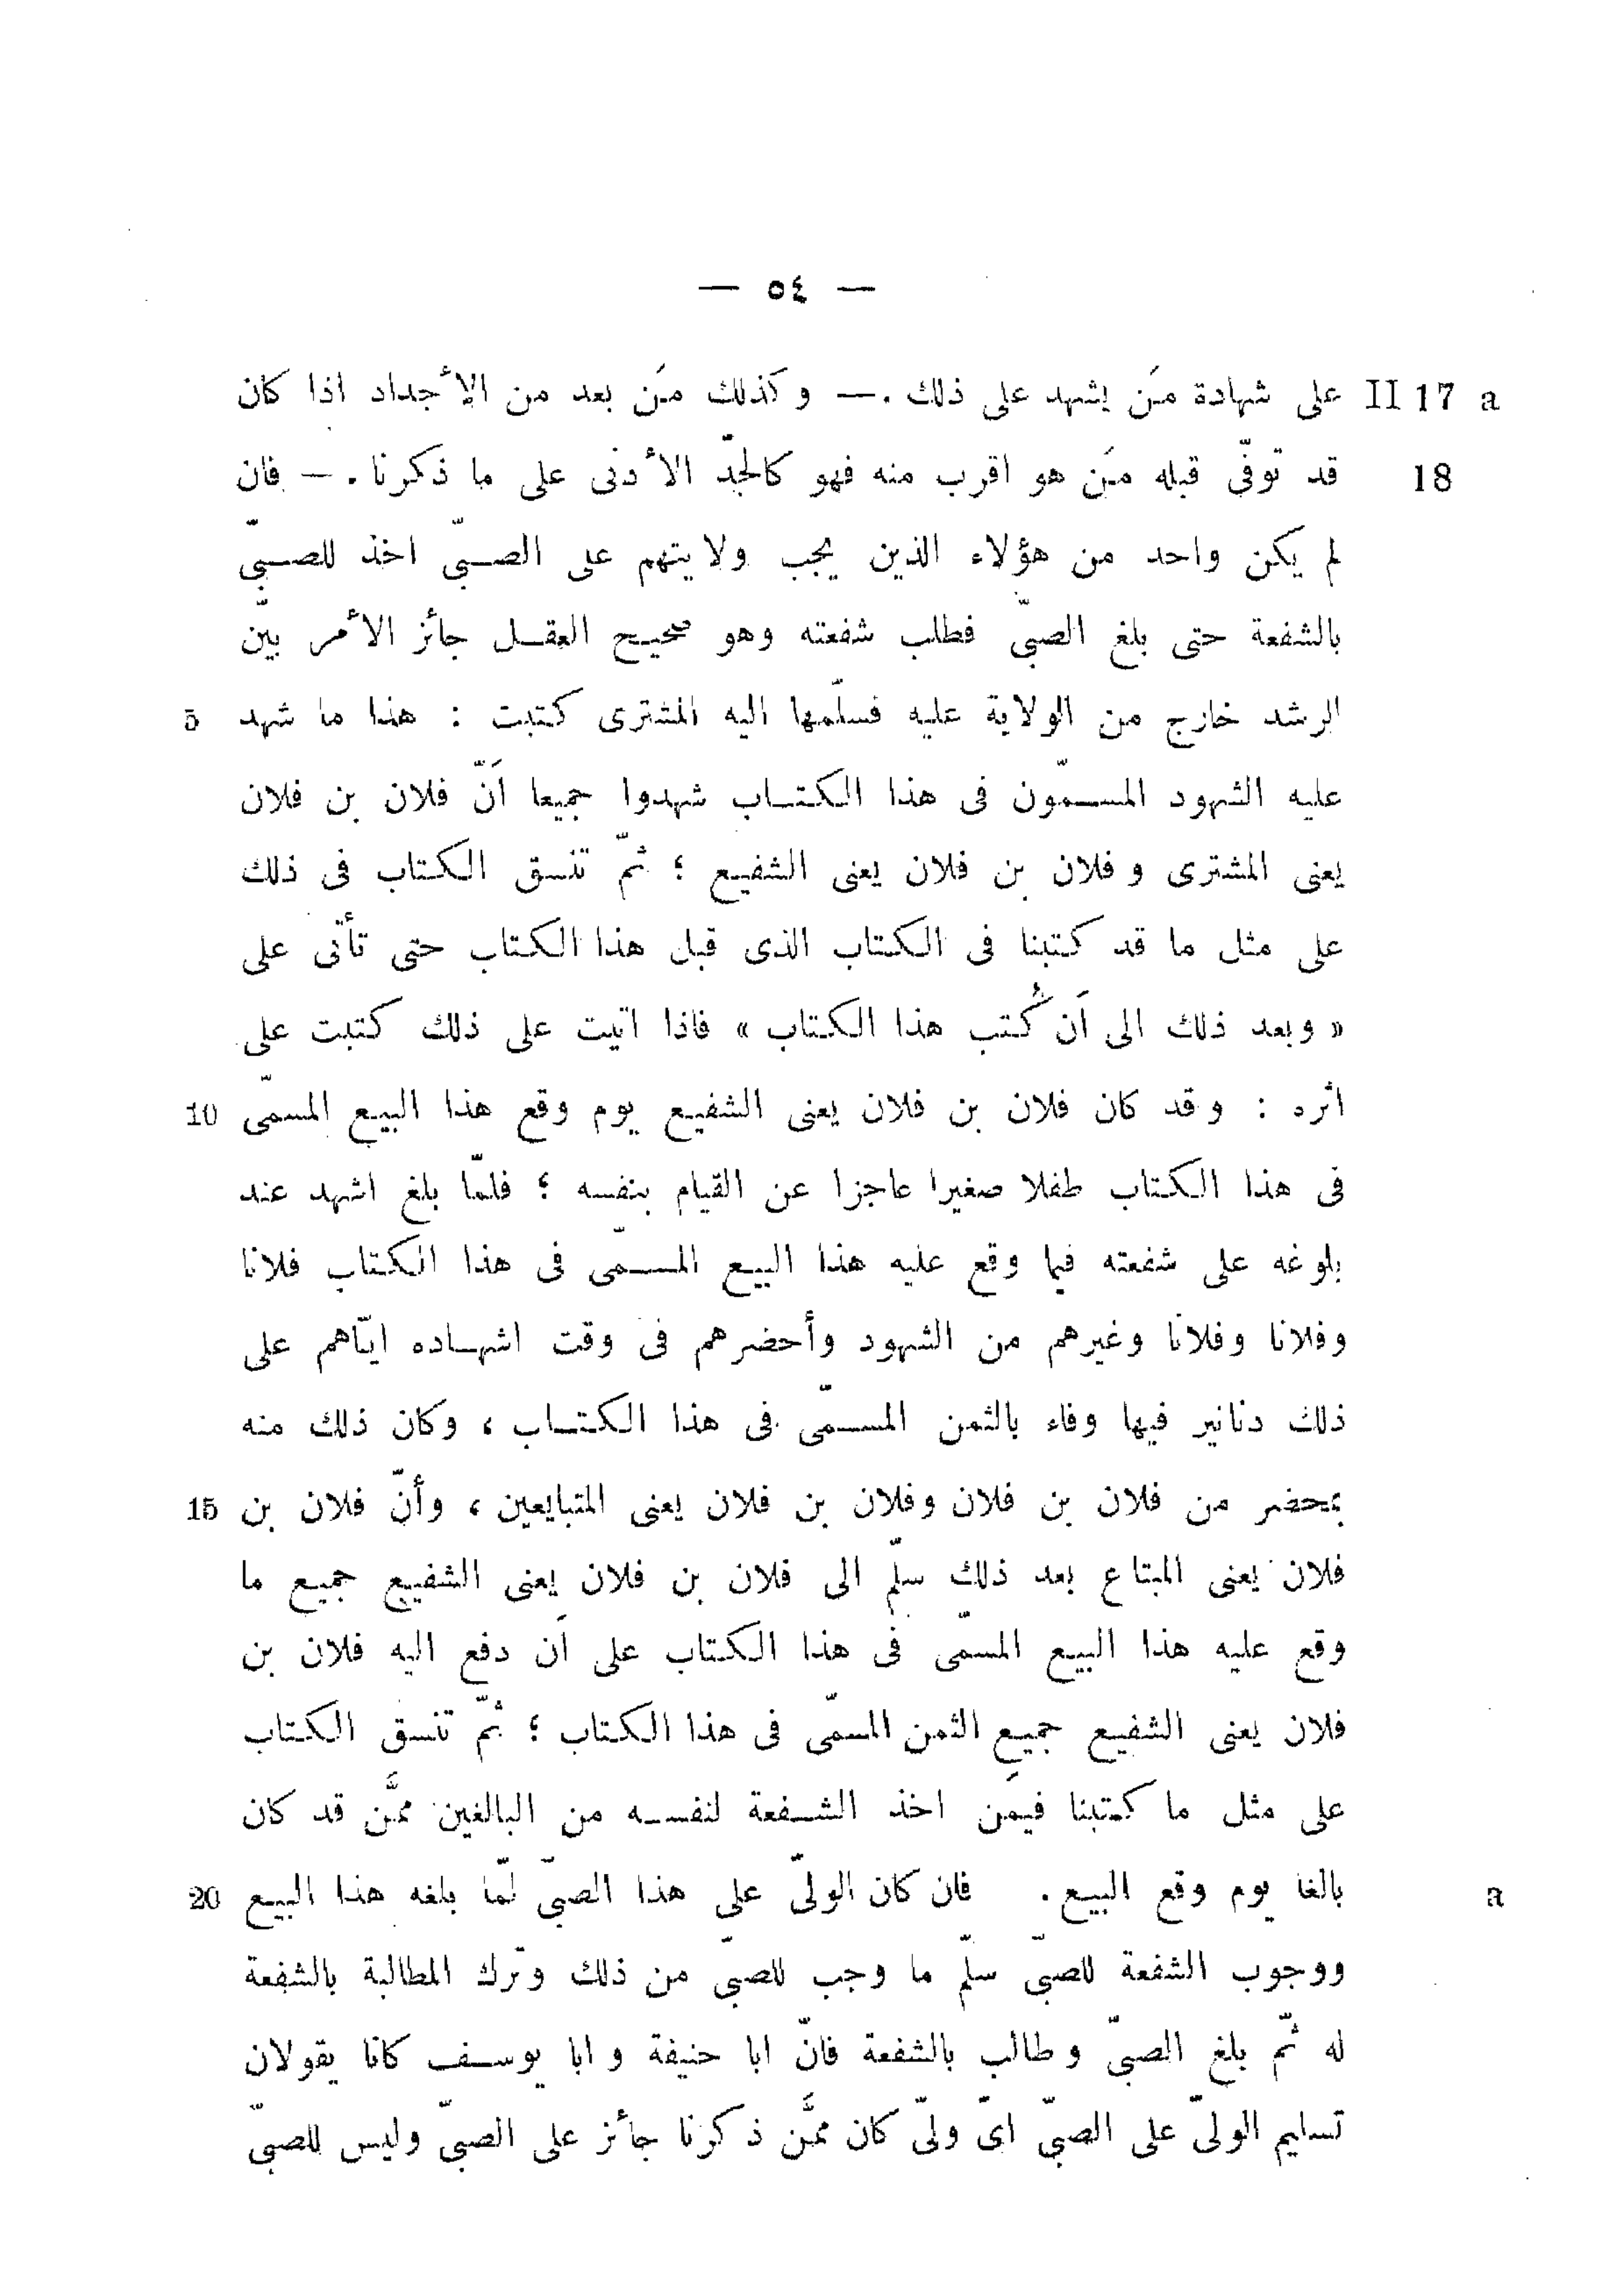 — ٥٤ —
II 17 a على شهادة مَن يشهد على ذلك . — وكذلك مَن بعد من الأجداد اذا كان
18 قد توفّى قبله مَن هو اقرب منه فهو كالجدّ الأدنى على ما ذكرنا . — فان
لم يكن واحد من هؤلاء الذين يجب ولايتهم على الصبىّ اخذ للصبىّ
بالشفعة حتى بلغ الصبىّ فطلب شفعته وهو صحيح العقل جائز الأمر بيّن
الرشد خارج من الولاية عليه فسلّمها اليه المشترى كتبت : هذا ما شهد 5
عليه الشهود المسمّون فى هذا الكتاب شهدوا جميعا أنّ فلان بن فلان
يعنى المشترى و فلان بن فلان يعنى الشفيع ؛ ثمّ تنسق الكتاب فى ذلك
على مثل ما قد كتبنا فى الكتاب الذى قبل هذا الكتاب حتى تأتى على
« وبعد ذلك الى أن كُتب هذا الكتاب » فاذا اتيت على ذلك كتبت على
اثره : وقد كان فلان بن فلان يعنى الشفيع يوم وقع هذا البيع المسمّى 10
فى هذا الكتاب طفلا صغيرا عاجزا عن القيام بنفسه ؛ فلمّا بلغ اشهد عند
بلوغه على شفعته فيما وقع عليه هذا البيع المسمّى فى هذا الكتاب فلانا
وفلانا وفلانا وغيرهم من الشهود وأحضرهم فى وقت اشهاده ايّاهم على
ذلك دنانير فيها وفاء بالثمن المسمّى فى هذا الكتاب ، وكان ذلك منه
بمحضر من فلان بن فلان وفلان بن فلان يعنى المتبايعين ، وأنّ فلان بن 15
فلان يعنى المبتاع بعد ذلك سلّم الى فلان بن فلان يعنى الشفيع جميع ما
وقع عليه هذا البيع المسمّى فى هذا الكتاب على أن دفع اليه فلان بن
فلان يعنى الشفيع جميع الثمن المسمّى فى هذا الكتاب ؛ ثمّ تنسق الكتاب
على مثل ما كتبنا فيمَن اخذ الشفعة لنفسه من البالغين ممَّن قد كان
a بالغا يوم وقع البيع . فان كان الولىّ على هذا الصبىّ لمّا بلغه هذا البيع 20
ووجوب الشفعة للصبىّ سلّم ما وجب للصبىّ من ذلك وترك المطالبة بالشفعة
له ثمّ بلغ الصبىّ وطالب بالشفعة فانّ ابا حنيفة و ابا يوسف كانا يقولان
تسليم الولىّ على الصبىّ اىّ ولىّ كان ممَّن ذكرنا جائز على الصبىّ وليس للصبىّ